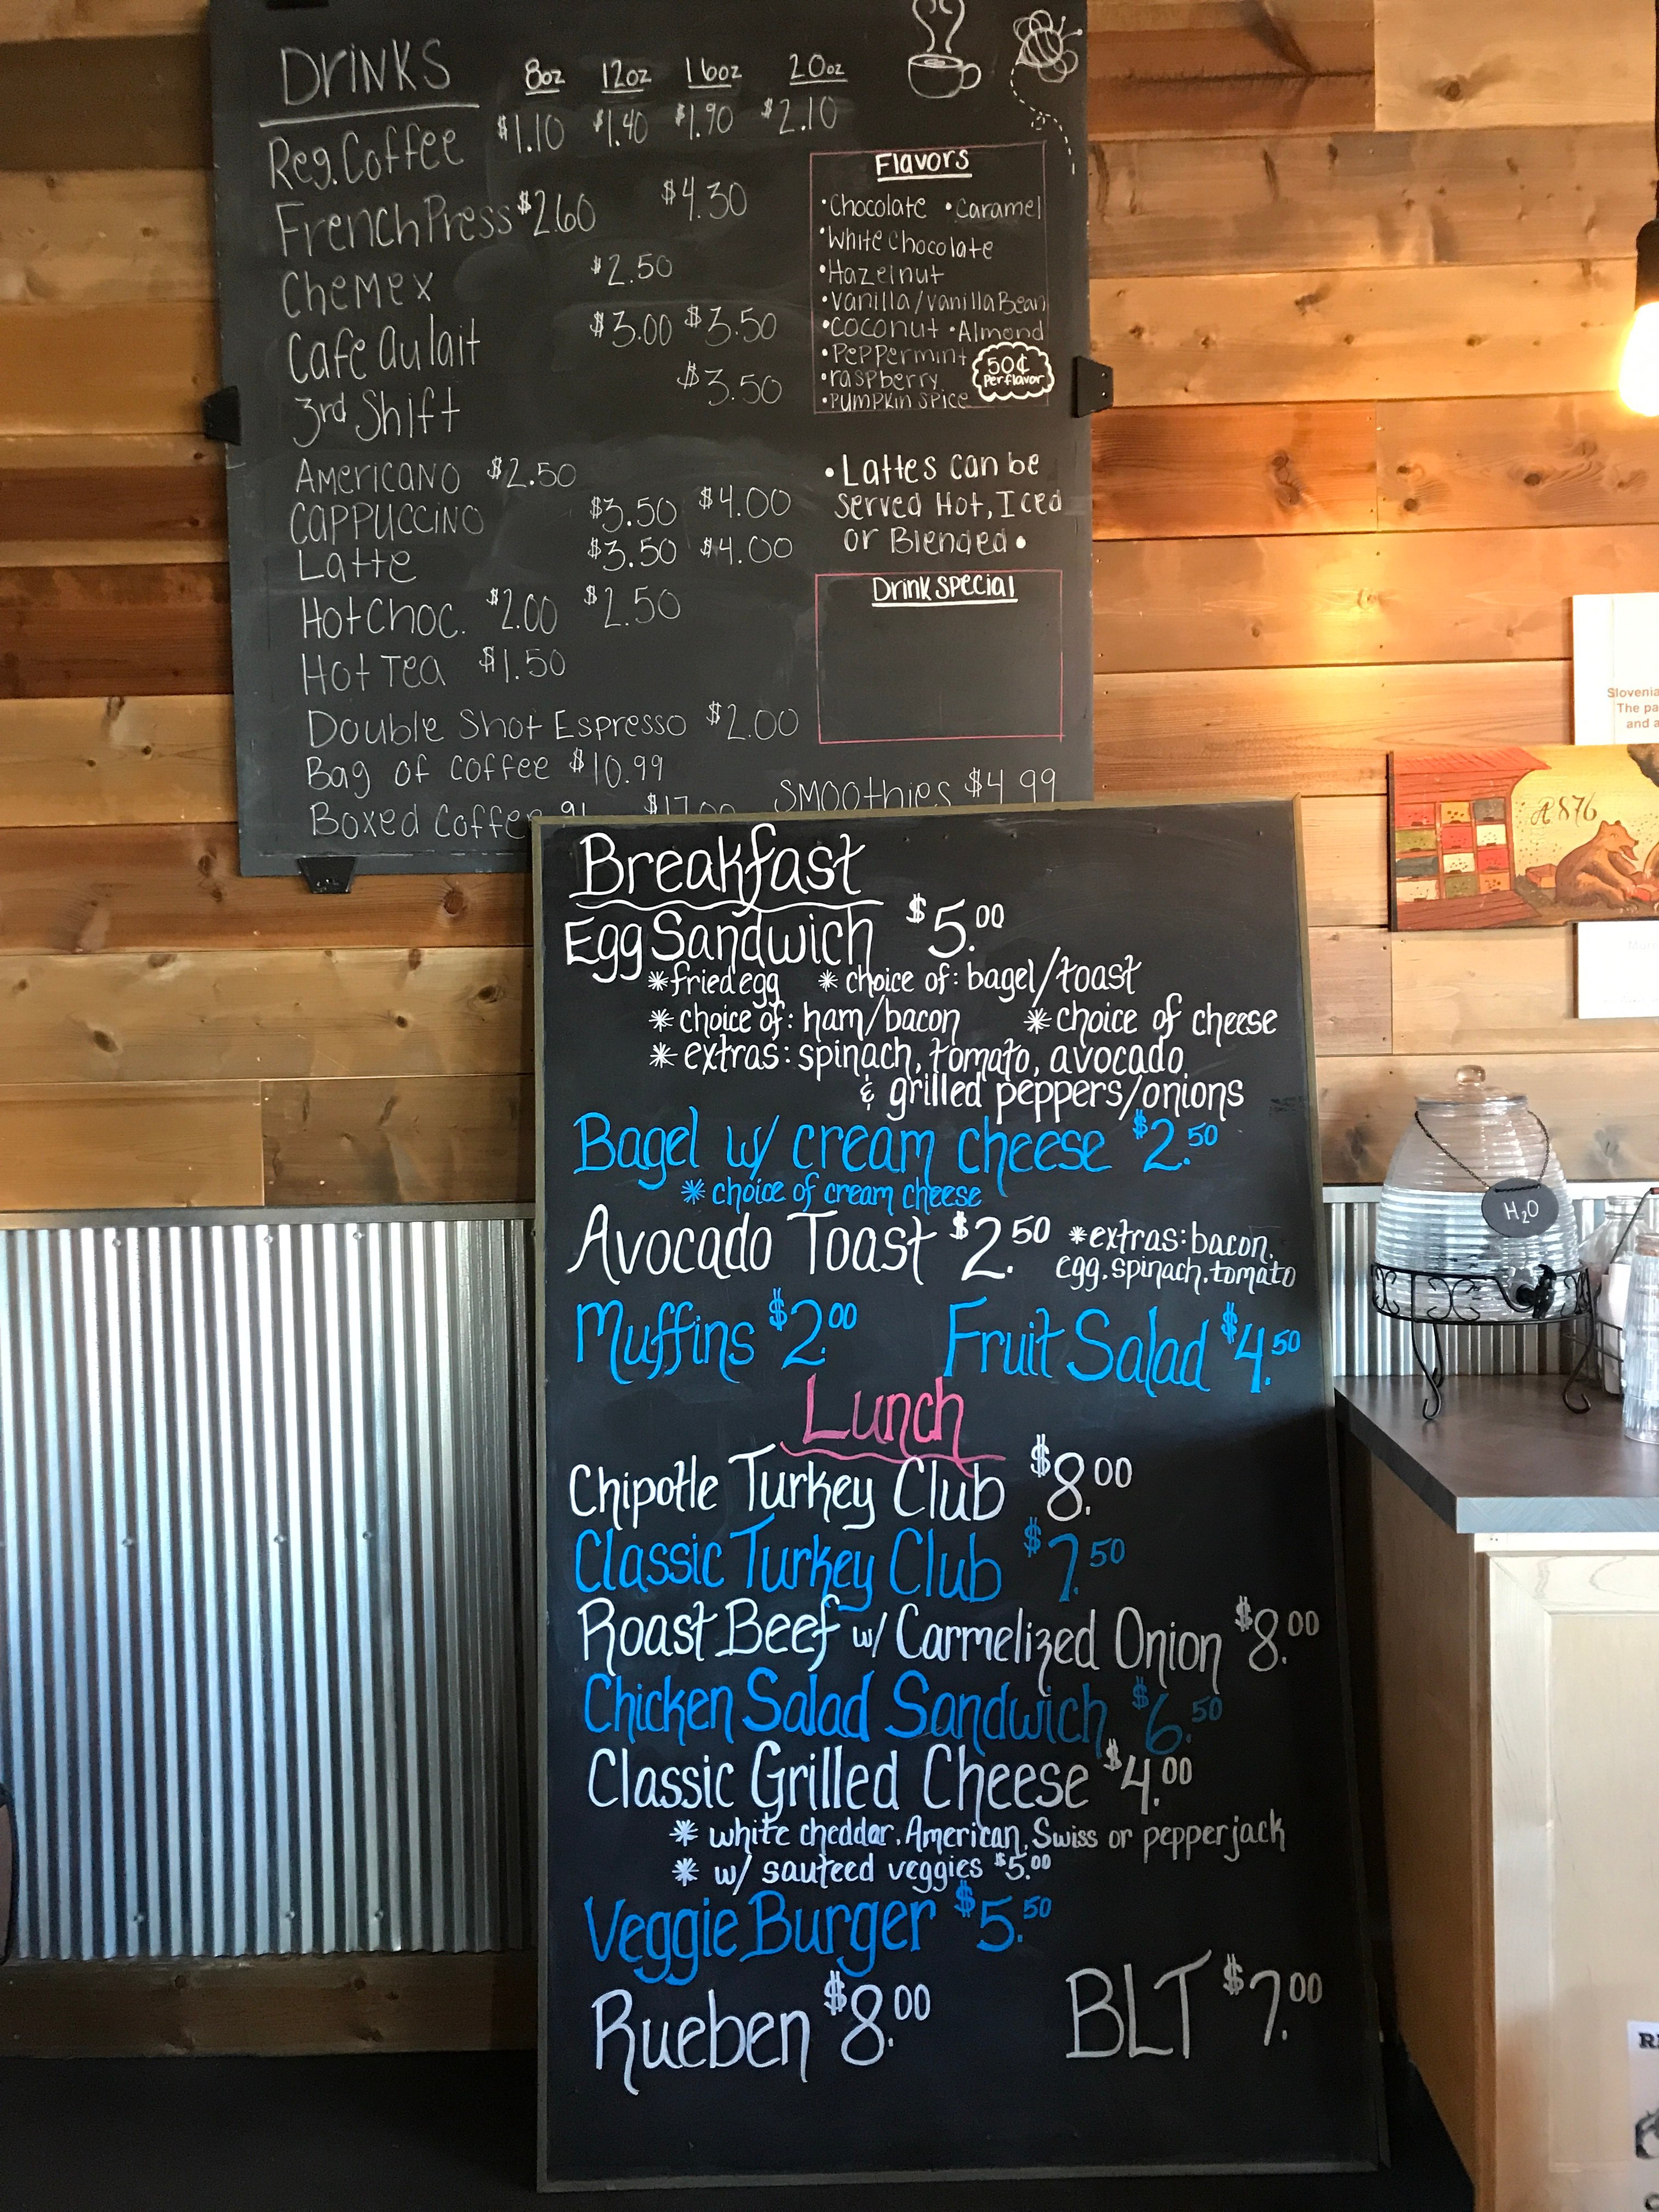 Drinks 8oz 12oz 16oz 20oz
Reg. Coffee $1.10 $1.40 $1.90 $2.10
French Press $2.60 $4.30
Chemex $2.50
Cafe Au lait $3.00 $3.50
3rd Shift $3.50
Americano $2.50
Cappuccino $3.50 $4.00
Latte $3.50 $4.00
Hot Choc. $2.00 $2.50
Hot Tea $1.50
Double Shot Espresso $2.00
Bag of coffee $10.99
Boxed Coffee
Smoothies $4.99
Flavors
•Chocolate •Caramel
•White Chocolate
•Hazelnut
•Vanilla/Vanilla Bean
•Coconut •Almond
•Peppermint
•raspberry
•Pumpkin Spice
50¢
Per flavor
•Lattes can be
served Hot, Iced
or Blended•
Drink Special
Breakfast
Egg Sandwich $5.00
*fried egg *choice of: bagel/toast
*choice of: ham/bacon *choice of cheese
*extras: spinach, tomato, avocado,
& grilled peppers/onions
Bagel w/ cream cheese $2.50
*choice of cream cheese
Avocado Toast $2.50 *extras: bacon,
egg, spinach, tomato
Muffins $2.00 Fruit Salad $4.50
Lunch
Chipotle Turkey Club $8.00
Classic Turkey Club $7.50
Roast Beef w/ Carmelized Onion $8.00
Chicken Salad Sandwich $6.50
Classic Grilled Cheese $4.00
* white cheddar, American, Swiss or pepperjack
* w/ sauteed veggies $5.00
Veggie Burger $5.50
Rueben $8.00 BLT $7.00
Slovenia
The pa
and a
A 876
H₂O